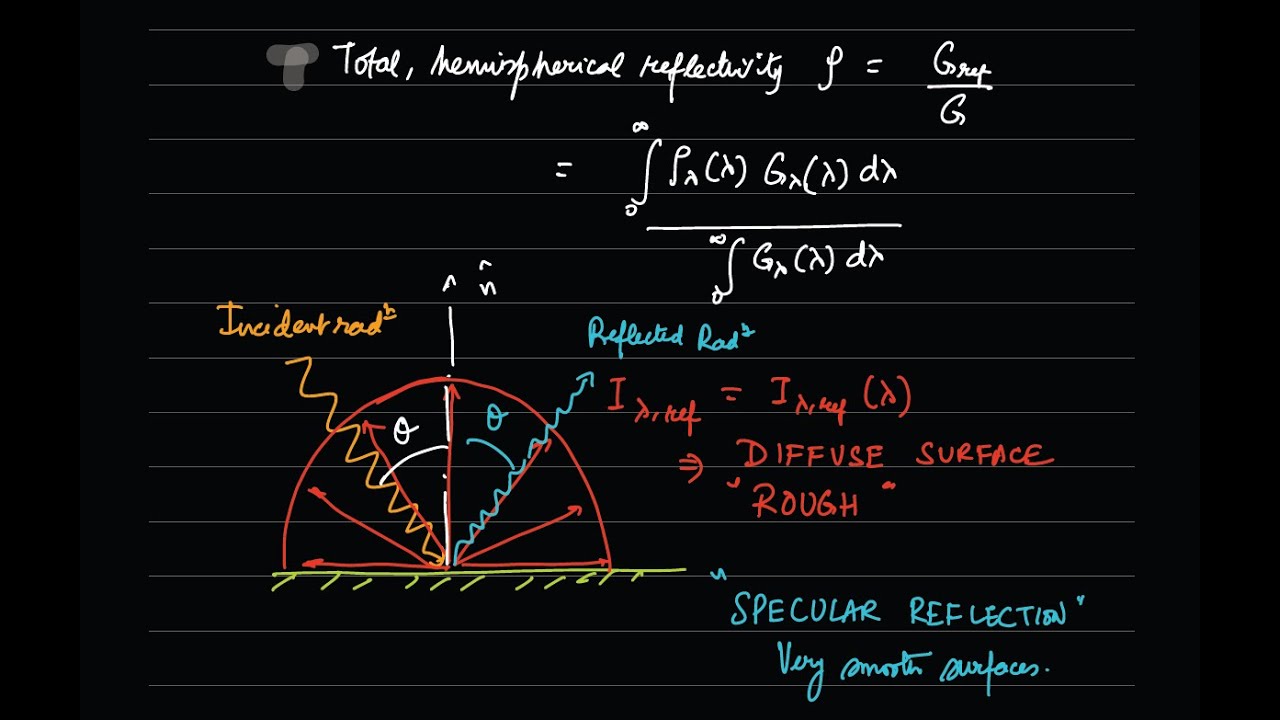 Total, hemispherical reflectivity ρ = G_ref / G
= ∫₀^∞ ρ_λ(λ) G_λ(λ) dλ / ∫₀^∞ G_λ(λ) dλ
n̂
Incident radⁿ
Reflected Radⁿ
θ θ
I_λ,ref = I_λ,ref (λ)
⇒ DIFFUSE SURFACE
"ROUGH"
"SPECULAR REFLECTION"
Very smooth surfaces.